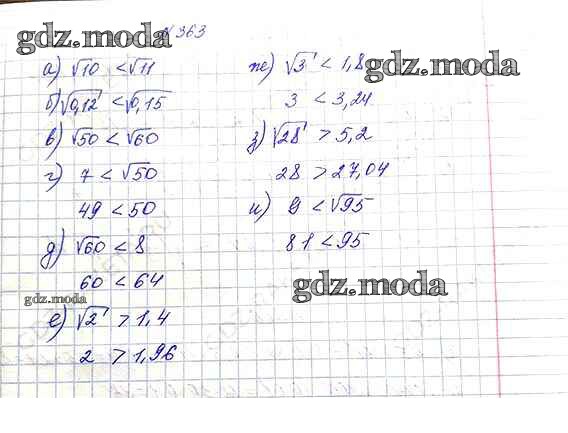 gdz.moda
№363
а) √10 < √11
б) √0,12 < √0,15
в) √50 < √60
г) 7 < √50
49 < 50
д) √60 < 8
60 < 64
gdz.moda
е) √2 > 1,4
2 > 1,96
ж) √3 < 1,8
gdz.moda
3 < 3,24
з) √28 > 5,2
28 > 27,04
и) 9 < √95
81 < 95
gdz.moda